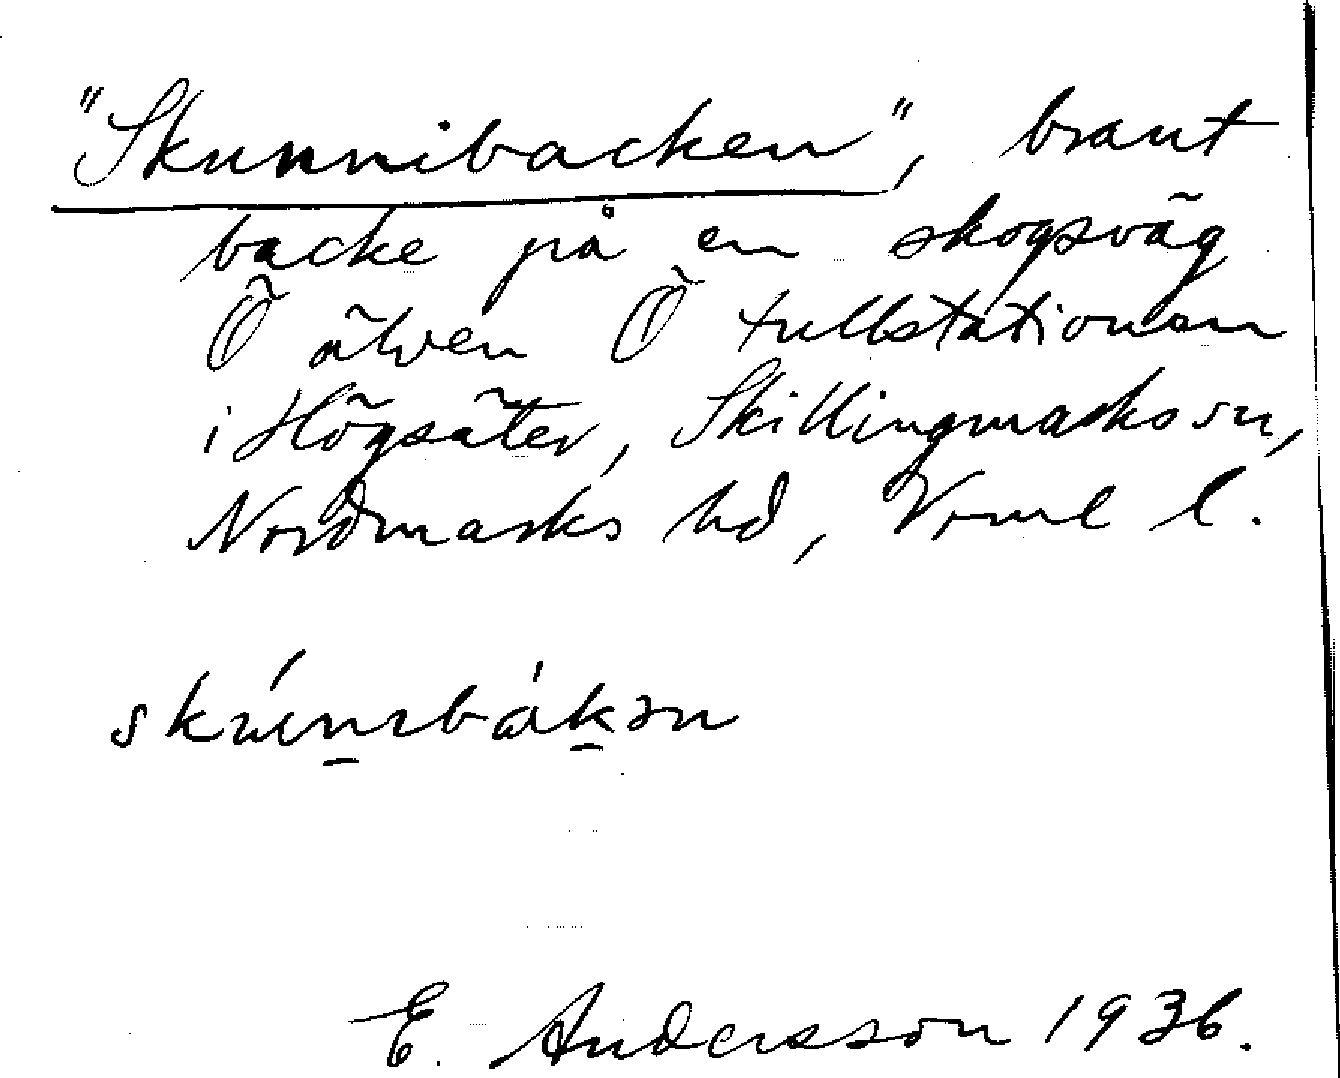 "Skunnibacken", brant
backe på en skogsväg
Ö älven Ö tullstationen
i Högsäter, Skillingmarks sn,
Nordmarks hd, Värml l.
E. Andersson 1936.